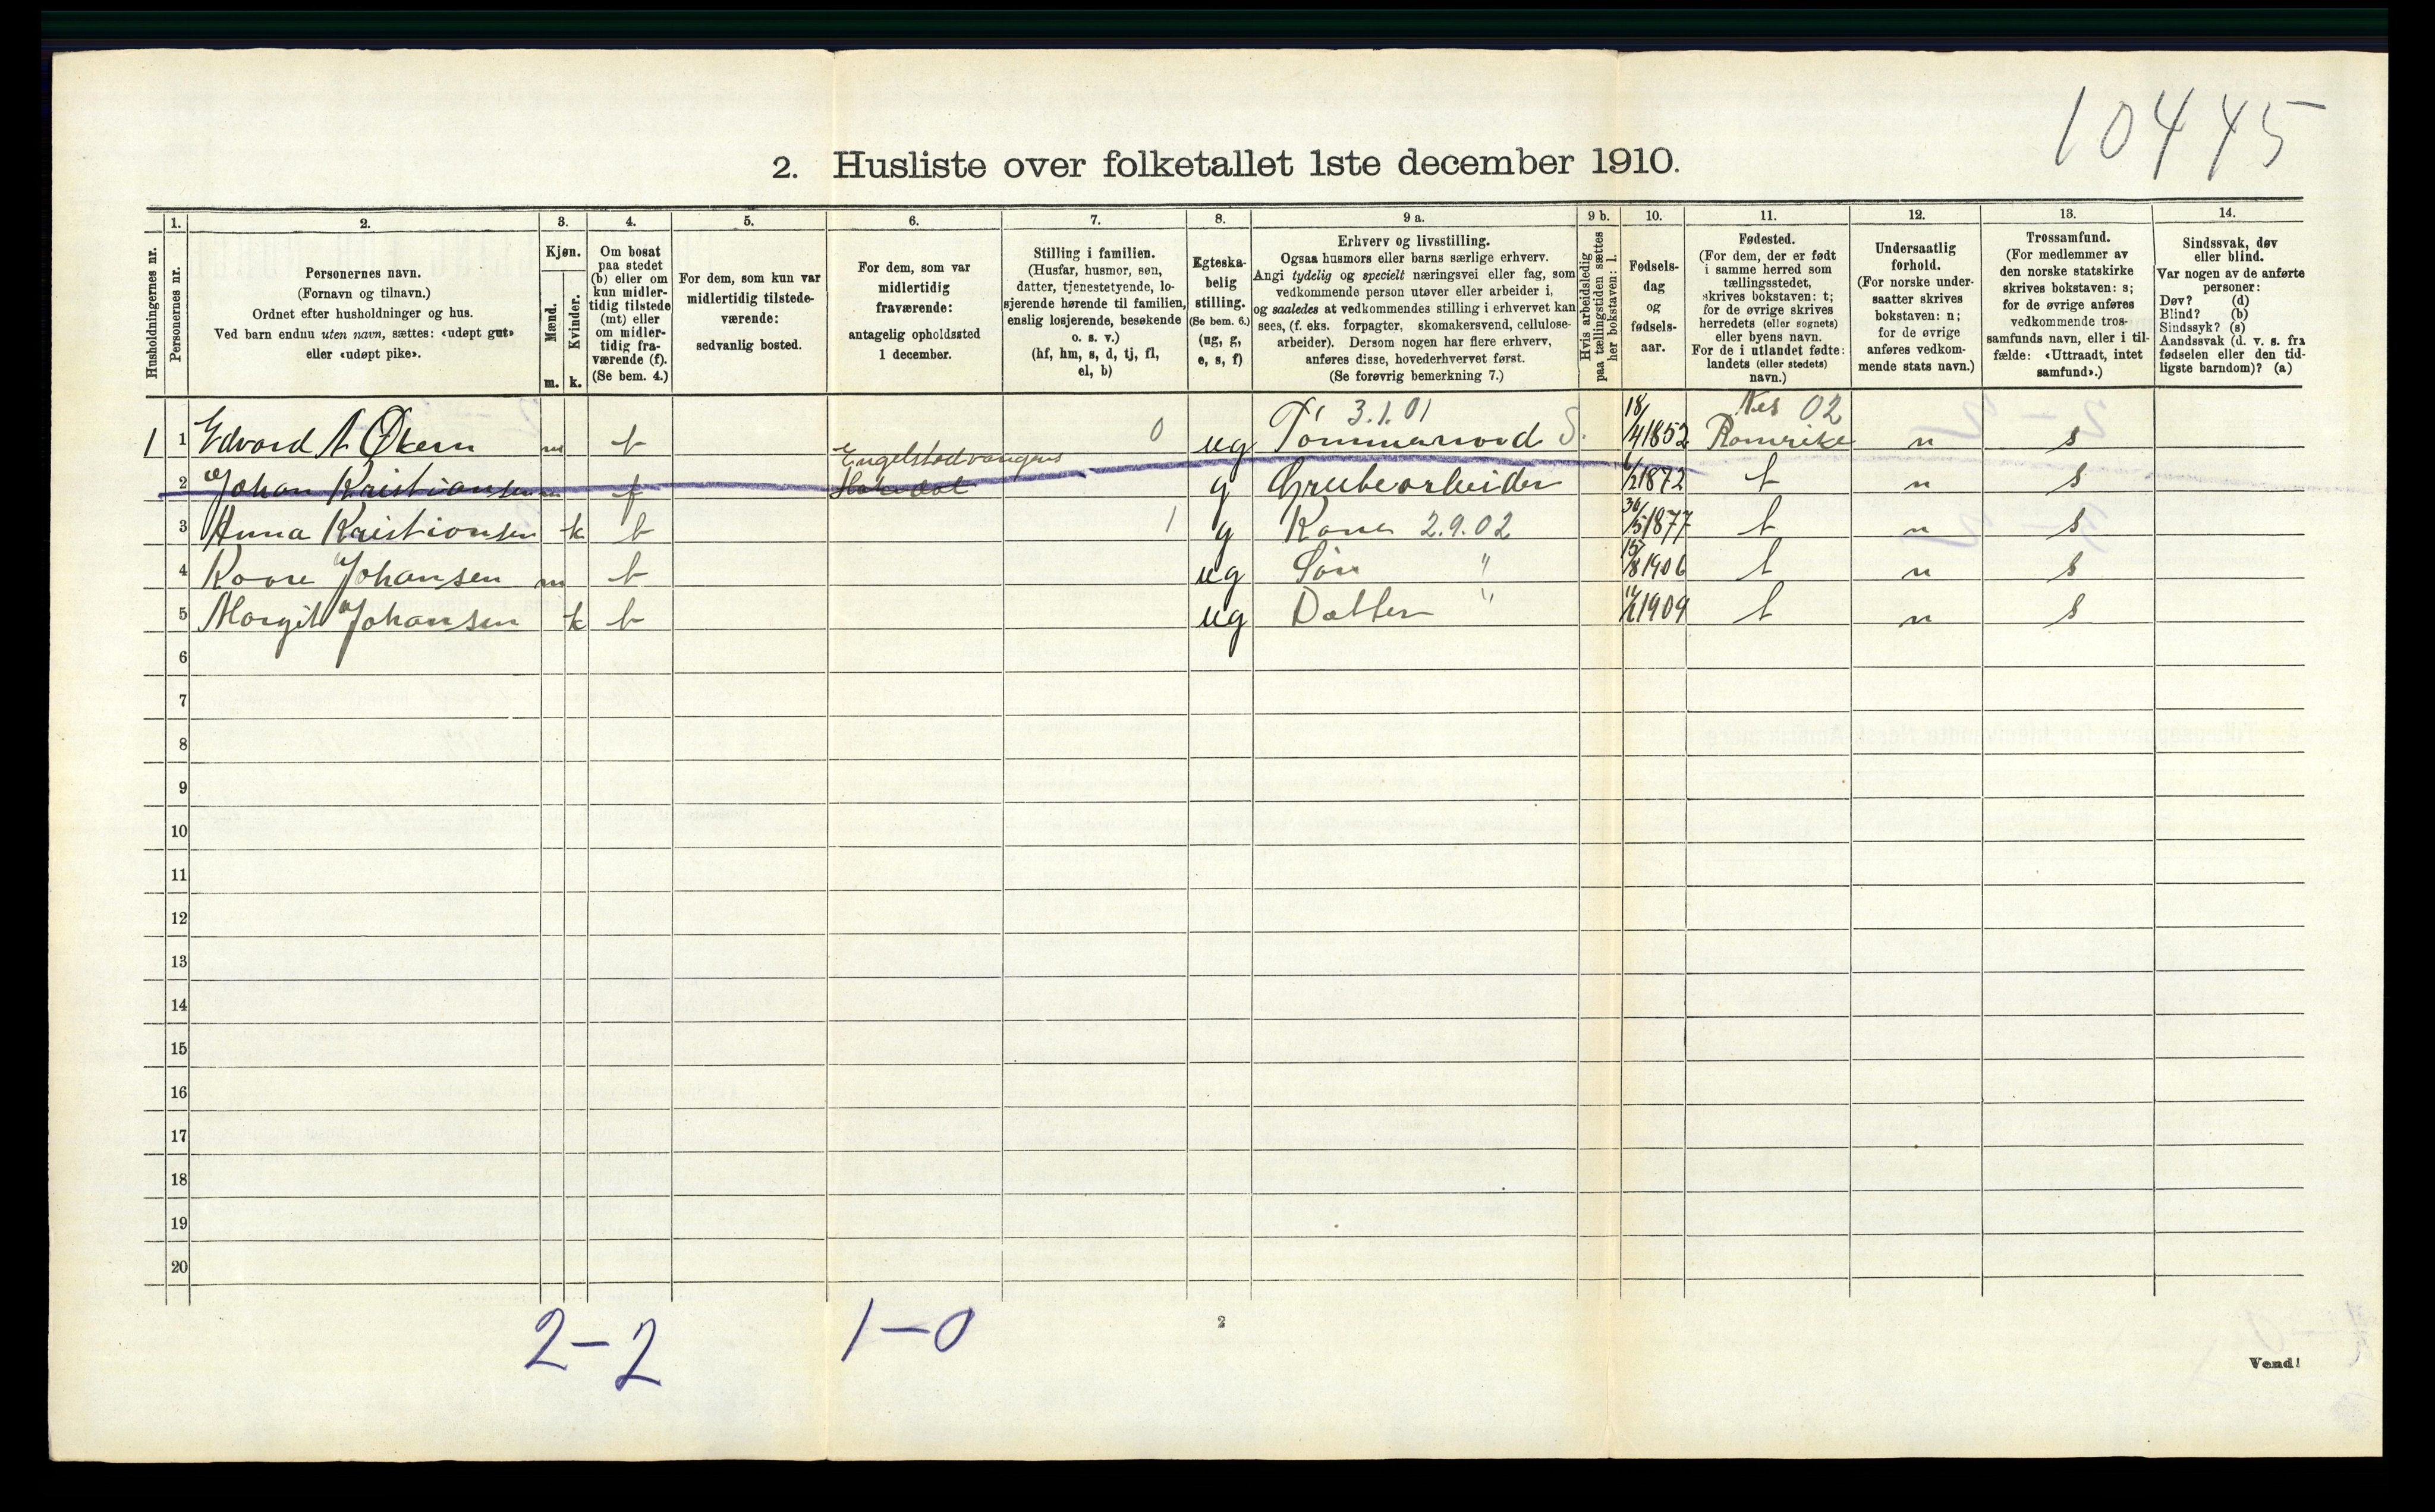 10445
2. Husliste over folketallet 1ste december 1910.
Husholdningernes nr.
1.
Personernes nr.
2.
Personernes navn.
(Fornavn og tilnavn.)
Ordnet efter husholdninger og hus.
Ved barn endnu uten navn, sættes: «udøpt gut»
eller «udøpt pike».
3.
Kjøn.
Mænd.
Kvinder.
m. k.
4.
Om bosat
paa stedet
(b) eller om
kun midler-
tidig tilstede
(mt) eller
om midler-
tidig fra-
værende (f).
(Se bem. 4.)
5.
For dem, som kun var
midlertidig tilstede-
værende:
sedvanlig bosted.
6.
For dem, som var
midlertidig
fraværende:
antagelig opholdssted
1 december.
7.
Stilling i familien.
(Husfar, husmor, søn,
datter, tjenestetyende, lo-
sjerende hørende til familien,
enslig losjerende, besøkende
o. s. v.)
(hf, hm, s, d, tj, fl,
el, b)
8.
Egteska-
belig
stilling.
(Se bem. 6.)
(ug, g,
e, s, f)
9 a.
Erhverv og livsstilling.
Ogsaa husmors eller barns særlige erhverv.
Angi tydelig og specielt næringsvei eller fag, som
vedkommende person utøver eller arbeider i,
og saaledes at vedkommendes stilling i erhvervet kan
sees, (f. eks. forpagter, skomakersvend, cellulose-
arbeider). Dersom nogen har flere erhverv,
anføres disse, hovederhvervet først.
(Se forøvrig bemerkning 7.)
9 b.
Hvis arbeidsledig
paa tællingstiden sættes
her bokstaven: l.
10.
Fødsels-
dag
og
fødsels-
aar.
11.
Fødested.
(For dem, der er født
i samme herred som
tællingsstedet,
skrives bokstaven: t;
for de øvrige skrives
herredets (eller sognets)
eller byens navn.
For de i utlandet fødte:
landets (eller stedets)
navn.)
12.
Undersaatlig
forhold.
(For norske under-
saatter skrives
bokstaven: n;
for de øvrige
anføres vedkom-
mende stats navn.)
13.
Trossamfund.
(For medlemmer av
den norske statskirke
skrives bokstaven: s;
for de øvrige anføres
vedkommende tros-
samfunds navn, eller i til-
fælde: «Uttraadt, intet
samfund».)
14.
Sindssvak, døv
eller blind.
Var nogen av de anførte
personer:
Døv? (d)
Blind? (b)
Sindssyk? (s)
Aandssvak (d. v. s. fra
fødselen eller den tid-
ligste barndom)? (a)
3.1.01 Nes 02
1 1 Edvard A Økern m b 0 ug Tømmermand S. 18/4 1852 Romerike n s
Engelstadvangens
2 Johan Kristiansen m f Hakedal g Grubearbeider 1872 t n s
3 Anna Kristiansen k b 1 g Kone 2.9.02 30/5 1877 t n s
4 Kaare Johansen m b ug Søn " 15/8 1906 t n s
5 Margit Johansen k b ug Datter " 1909 t n s
6
7
8
9
10
11
12
13
14
15
16
17
18
19
20
2-2 1-0
2
Vend!